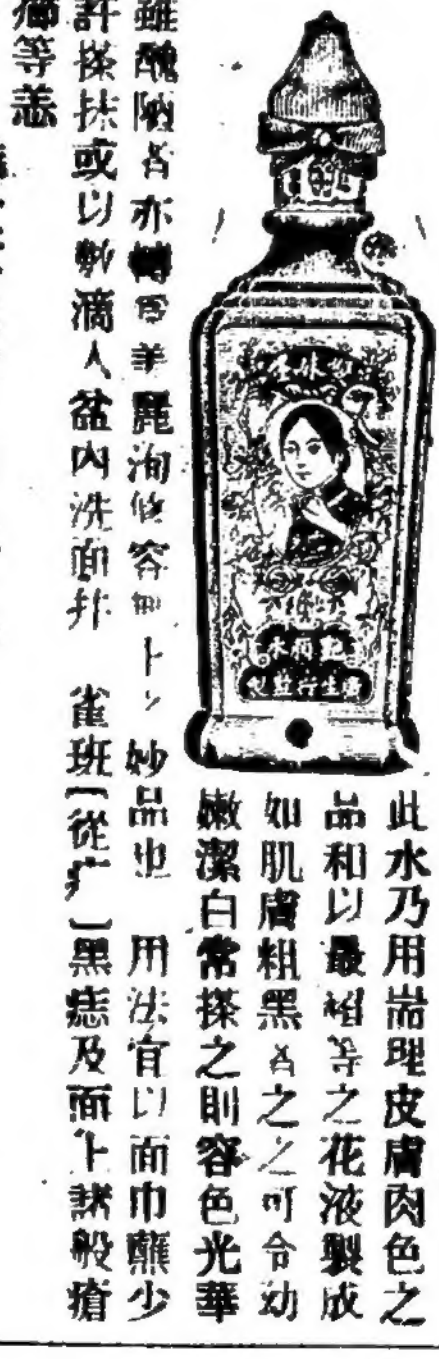 此水乃用耑理皮膚肉色之
品和以最超等之花液製成
如肌膚粗黑者之之可令幼
嫩潔白常搽之則容色光華
雖醜陋者亦轉為美麗洵修容無上 妙品也 用法宜以面巾蘸少
許搽抹或以數滴入盆內洗面并 雀班[從疒]黑痣及面上諸般瘡
癤等恙
雙妹嘜
花露水
廣生行監製